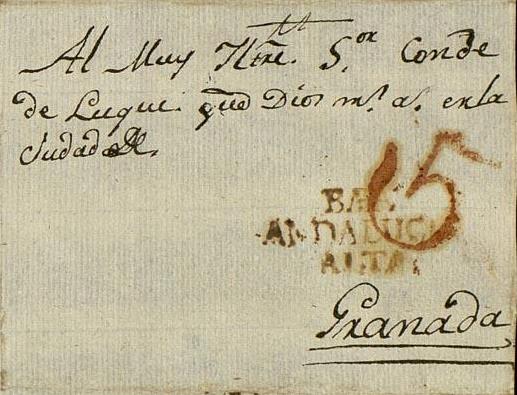 Al Muy Iltre. S.or Conde
de Luque. qued Dios m.s a.s en la
Ciudad de
15
BAEZA
ANDALUCIA
ALTA
Granada